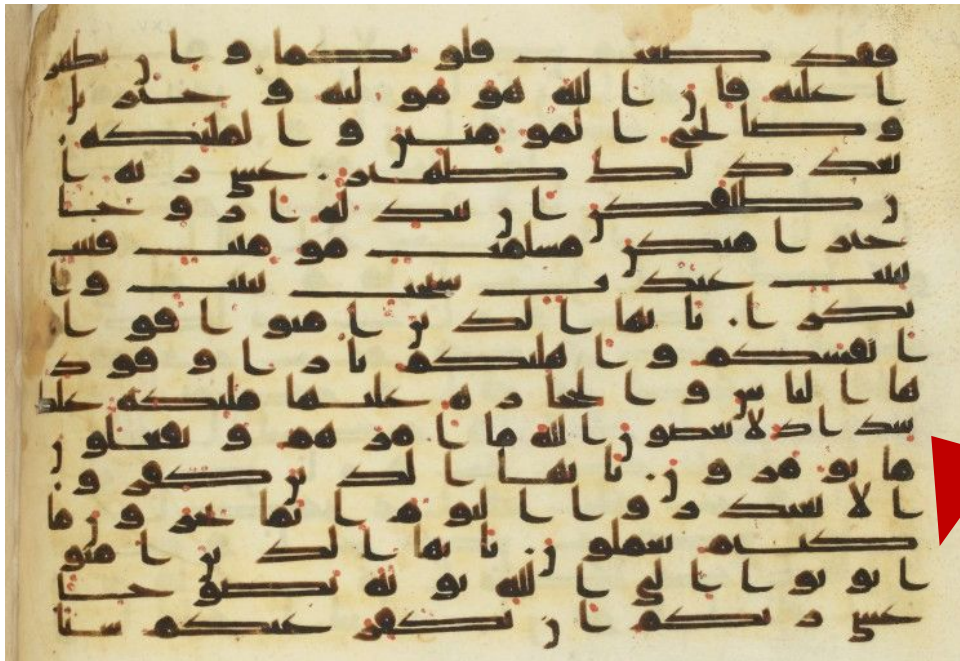 فقد صغت قلوبكما وان تظهر
ا عليه فان الله هو موليه وجبريل
وصالح المومنين والمليكة
بعد ذلك ظهير عسى ربه ا
ن طلقكن ان يبدله ازوجا
خيرا منكن مسلمت مومنت قنت
تيبت عبدت سيحت ثيبت وا
بكرا يايها الذين امنوا قوا
انفسكم واهليكم نارا وقود
ها الناس والحجارة عليها مليكة غلظ
شداد لا يعصون الله ما امرهم ويفعلون
ما يومرون يايها الذين كفرو
ا لا تعتذروا اليوم انما تجزون ما
كنتم تعملون يايها الذين امنو
ا توبوا الى الله توبة نصوحا
عسى ربكم ان يكفر عنكم سيا